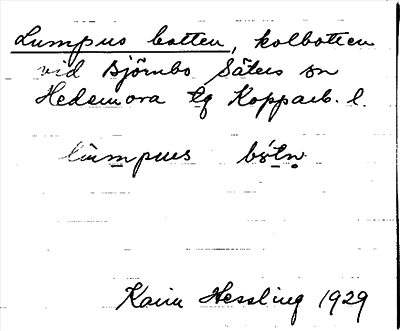 Lumpus botten, kolbotten
vid Björnbo Säters sn
Hedemora tg Kopparb. l.
lùmpus bótn̥
Karin Hessling 1929